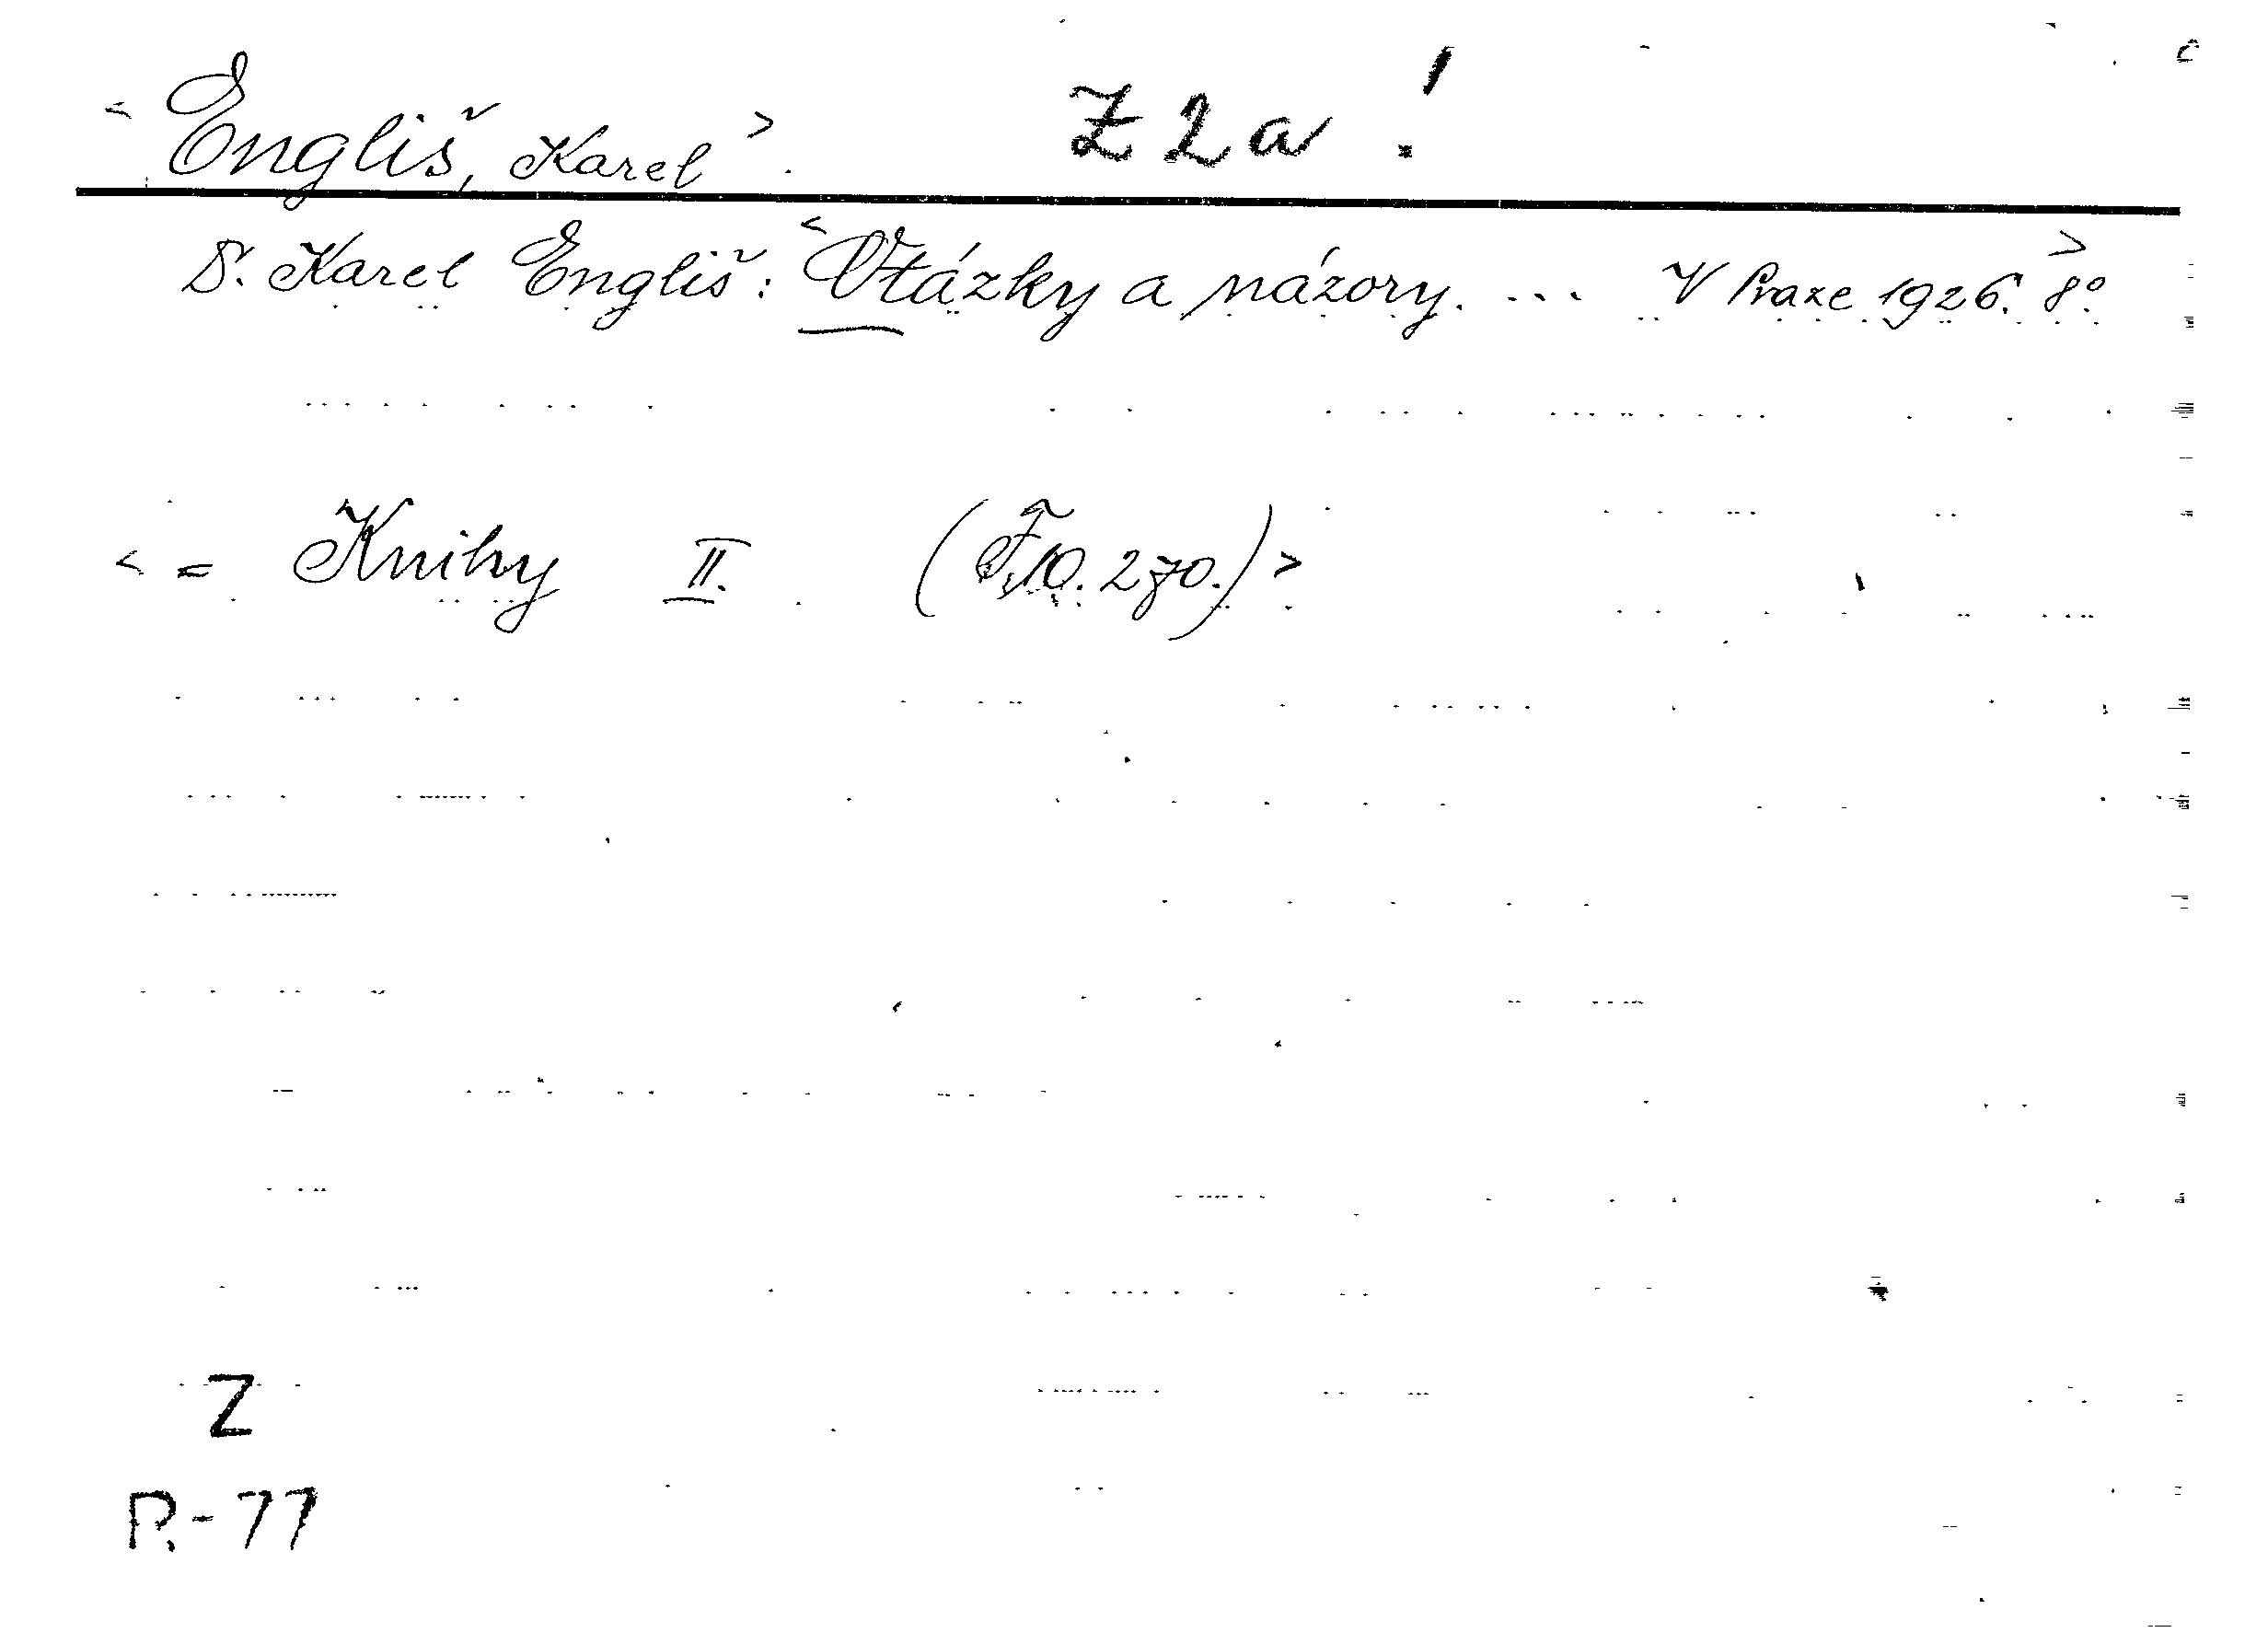 <Engliš, Karel>. Z 2 a !
D. Karel Engliš: <Otázky a názory. ... V Praze 1926.> 8°.
<= Knihy II. (F 10.270.)>
Z
P.-77